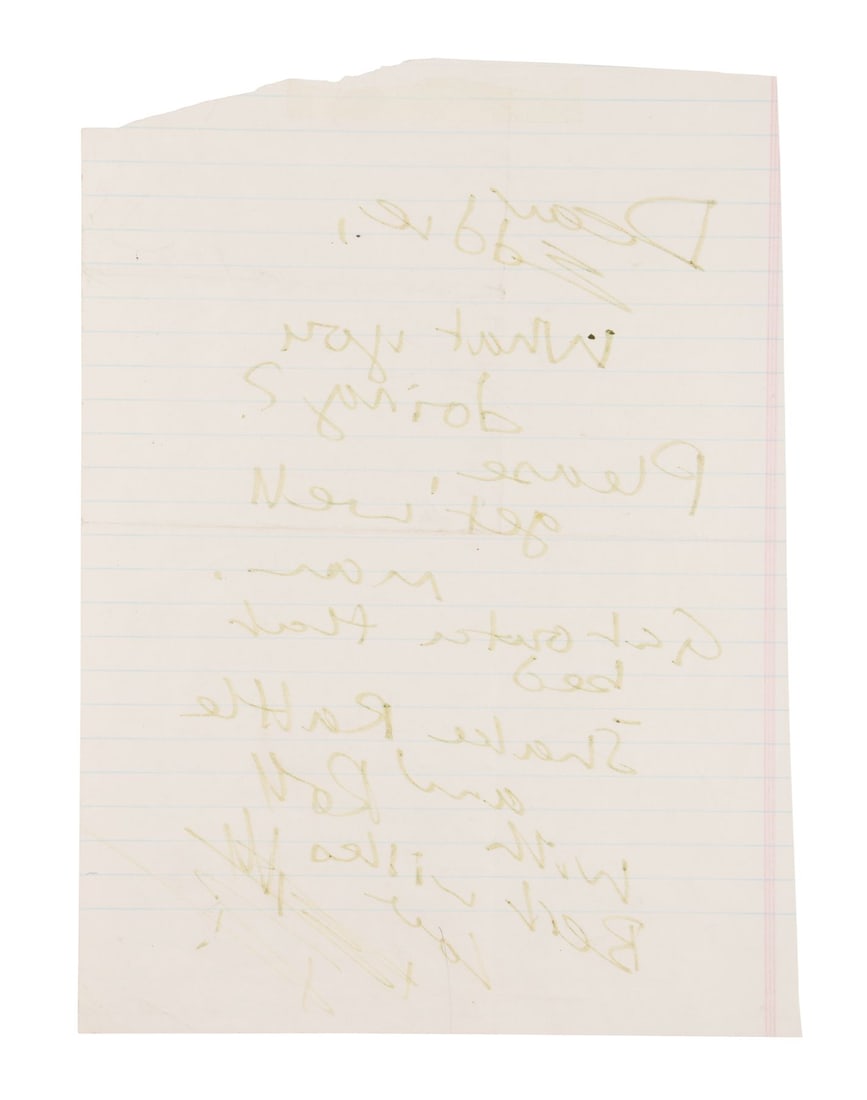 Dear
Eddie,
What you
doing?
Please,
get well
man.
Get outa that
bed
Shake Rattle
and Roll
With
Best wishes